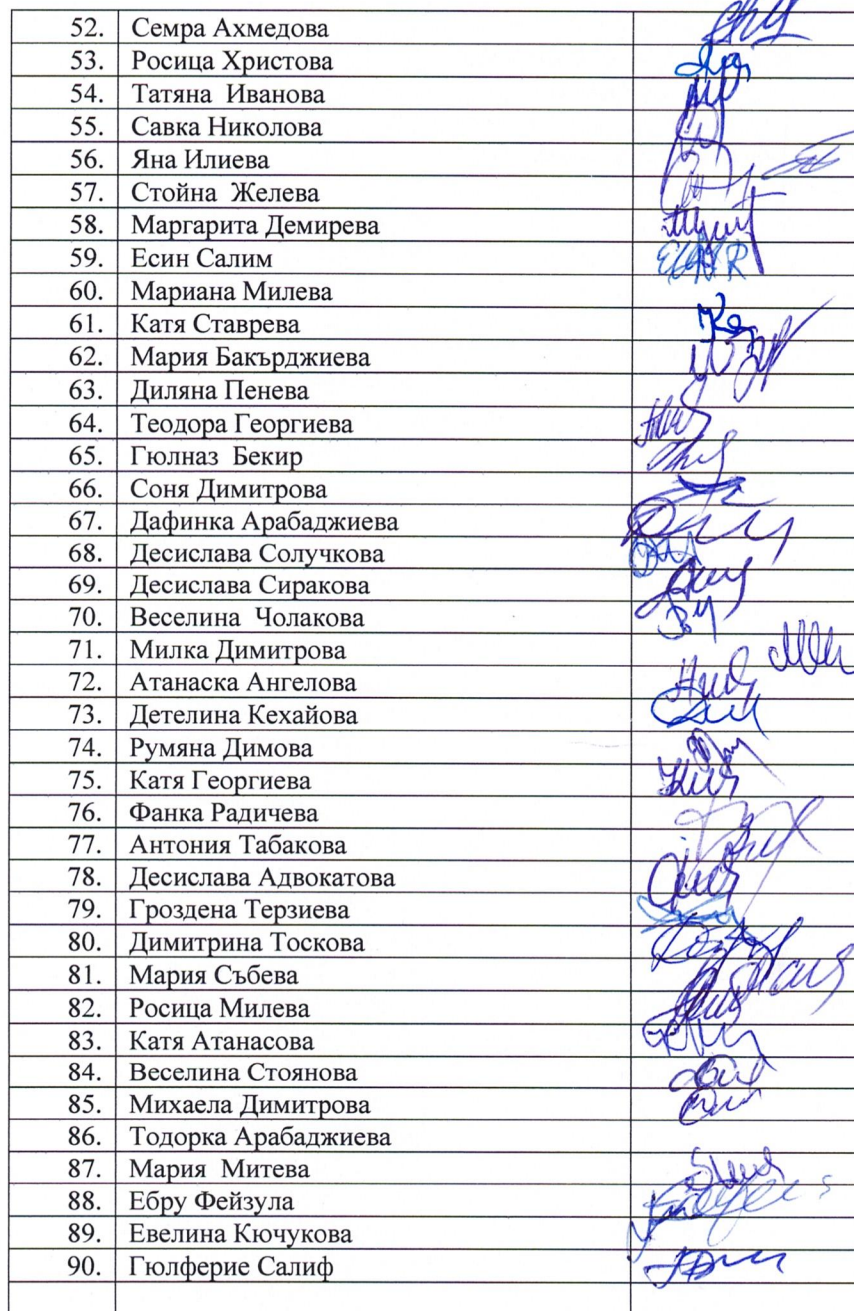 52. Семра Ахмедова
53. Росица Христова
54. Татяна Иванова
55. Савка Николова
56. Яна Илиева
57. Стойна Желева
58. Маргарита Демирева
59. Есин Салим
60. Мариана Милева
61. Катя Ставрева
62. Мария Бакърджиева
63. Диляна Пенева
64. Теодора Георгиева
65. Гюлназ Бекир
66. Соня Димитрова
67. Дафинка Арабаджиева
68. Десислава Солучкова
69. Десислава Сиракова
70. Веселина Чолакова
71. Милка Димитрова
72. Атанаска Ангелова
73. Детелина Кехайова
74. Румяна Димова
75. Катя Георгиева
76. Фанка Радичева
77. Антония Табакова
78. Десислава Адвокатова
79. Гроздена Терзиева
80. Димитрина Тоскова
81. Мария Събева
82. Росица Милева
83. Катя Атанасова
84. Веселина Стоянова
85. Михаела Димитрова
86. Тодорка Арабаджиева
87. Мария Митева
88. Ебру Фейзула
89. Евелина Кючукова
90. Гюлферие Салиф